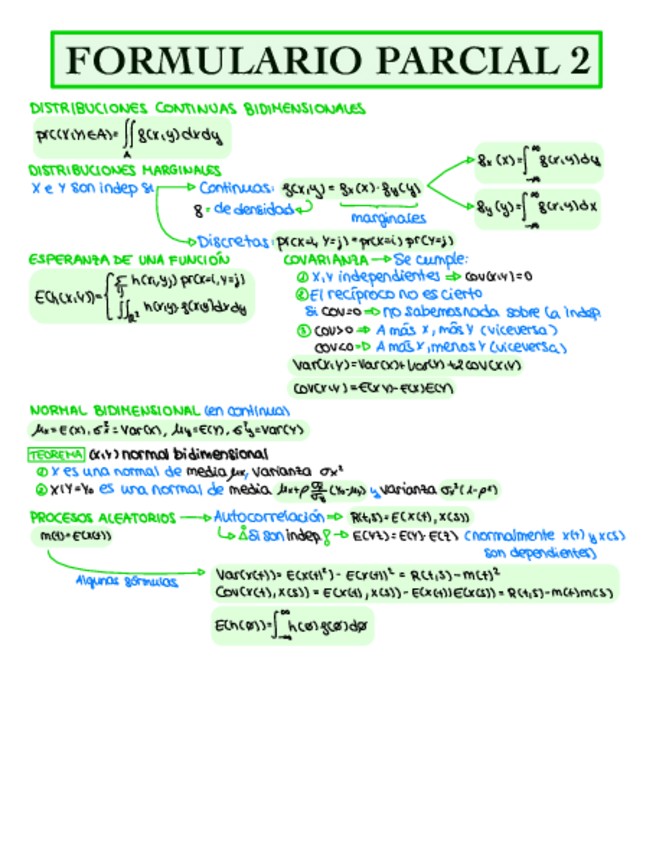 FORMULARIO PARCIAL 2
DISTRIBUCIONES CONTINUAS BIDIMENSIONALES
pr((X,Y)∈A)= ∬_A f(x,y)dxdy
DISTRIBUCIONES MARGINALES
X e Y son indep si
Continuas: f(x,y) = fx(x)·fy(y)
marginales
f = de densidad
fx(x)=∫_{-∞}^{∞} f(x,y)dy
fy(y)=∫_{-∞}^{∞} f(x,y)dx
Discretas: pr(X=i, Y=j) = pr(X=i) pr(Y=j)
ESPERANZA DE UNA FUNCIÓN
E(h(X,Y))= { Σ_{ij} h(xi,yj) pr(X=i,Y=j)
∬_{R²} h(x,y)·f(x,y)dxdy
COVARIANZA → Se cumple:
① X,Y independientes ⇒ cov(X,Y)=0
② El recíproco no es cierto
si cov=0 ⇒ no sabemos nada sobre la indep.
③ cov>0 ⇒ A más X, más Y (viceversa)
cov<0 ⇒ A más X, menos Y (viceversa)
Var(X,Y)=Var(X)+Var(Y)+2cov(X,Y)
cov(X,Y)=E(XY)-E(X)E(Y)
NORMAL BIDIMENSIONAL (en continua)
μx=E(X), σ²x=Var(X), μy=E(Y), σ²y=Var(Y)
TEOREMA (X,Y) normal bidimensional
① X es una normal de media μx, varianza σx²
② X|Y=Y₀ es una normal de media μx+ρ σx/σy (Y₀-μy) y varianza σx²(1-ρ²)
PROCESOS ALEATORIOS → Autocorrelación ⇒ R(t,s)=E(X(t),X(s))
m(t)=E(X(t))
¡Si son indep! → E(YZ)=E(Y)·E(Z) (normalmente x(t) y x(s)
son dependientes)
Algunas fórmulas
Var(X(t))= E(X(t)²) - E(X(t))² = R(t,s)-m(t)²
Cov(X(t),X(s)) = E(X(t),X(s))-E(X(t))E(X(s)) = R(t,s)-m(t)m(s)
E(h(ø))=∫_{-∞}^{∞} h(ø)f(ø)dø